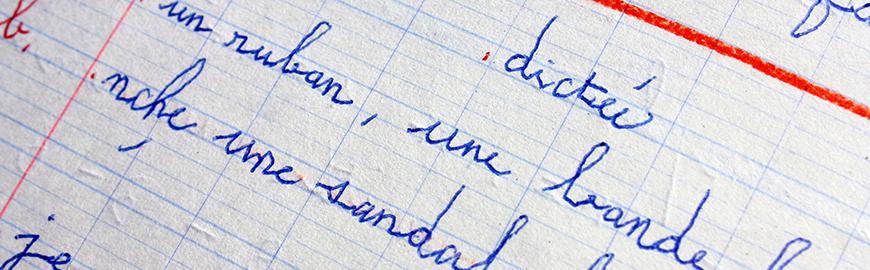 dictée
b. un ruban, une bande
nche une sandal
je